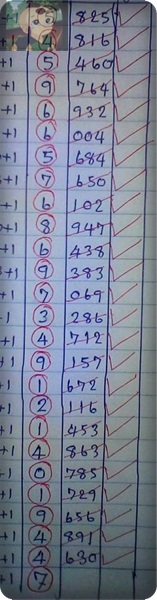 825
4 816
+1 5 460
+1 9 764
+1 6 932
+1 6 004
+1 5 684
+1 7 650
+1 6 102
+1 8 947
+1 6 438
+1 9 383
+1 7 069
1 3 286
+1 4 712
+1 9 157
+1 1 672
+1 2 116
+1 1 453
+1 4 863
+1 0 785
+1 1 729
+1 9 656
+1 4 891
+1 4 630
+1 7